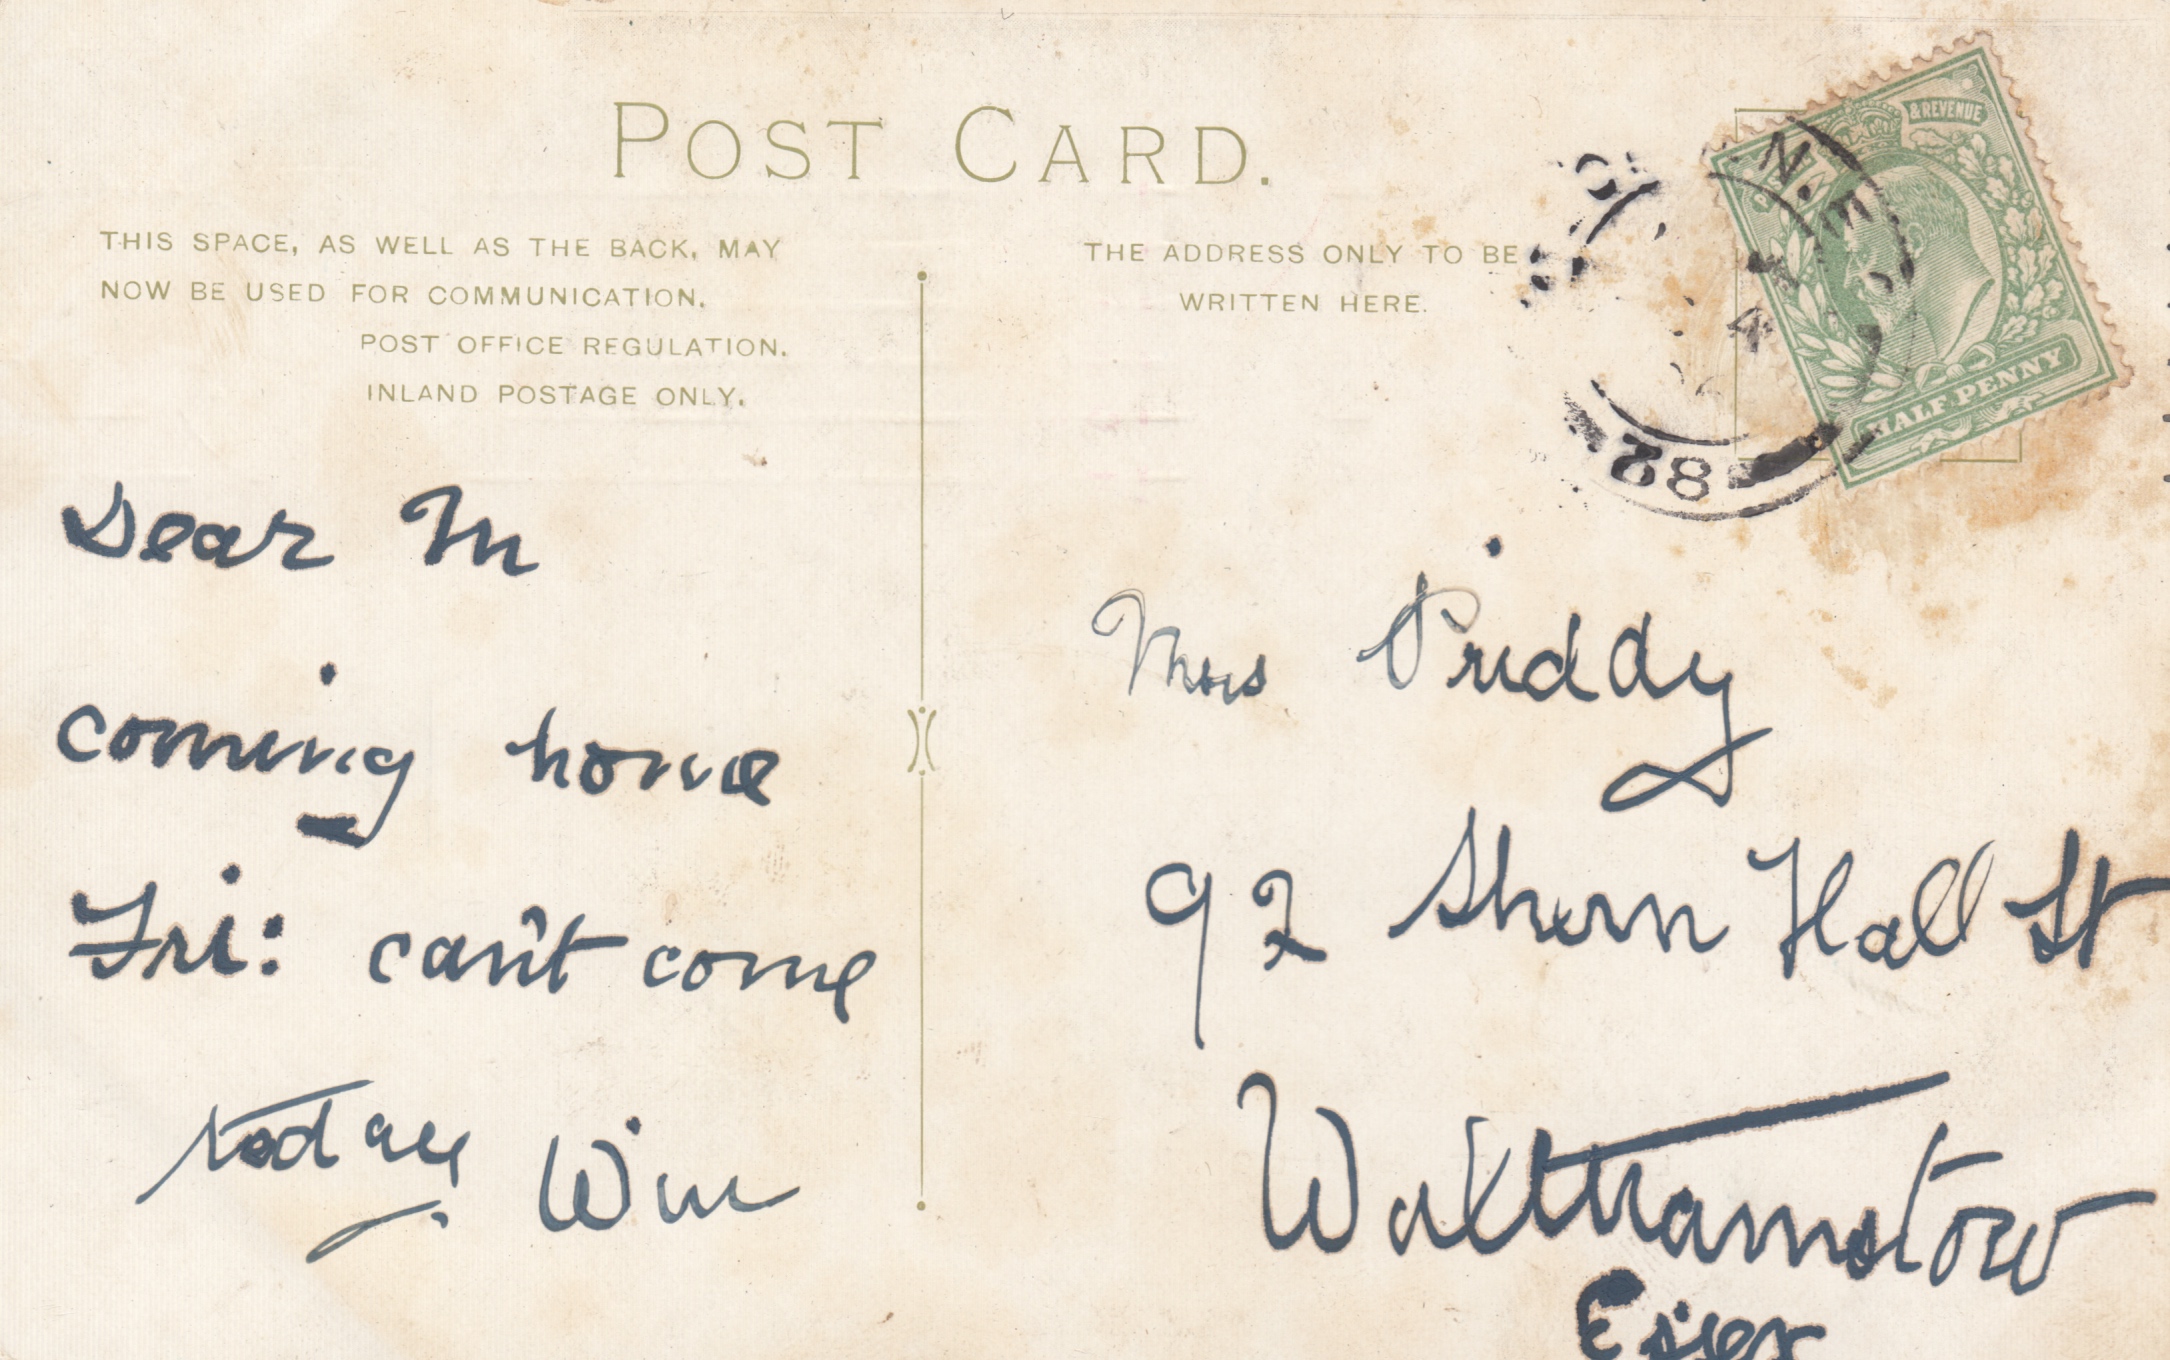 POST CARD.
THIS SPACE, AS WELL AS THE BACK, MAY
NOW BE USED FOR COMMUNICATION.
POST OFFICE REGULATION.
INLAND POSTAGE ONLY.
THE ADDRESS ONLY TO BE
WRITTEN HERE.
& REVENUE
HALF PENNY
N.E.
4
88
Dear M
coming home
Fri: can't come
today. Win
Mrs Priddy
92 Shern Hall St
Walthamstow
Essex